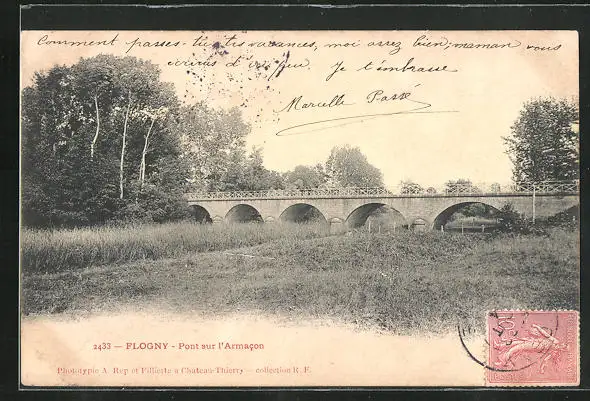 Comment passes-tu tes vacances, moi assez bien, maman vous
écrira d'ici peu. Je t'embrasse
Marcelle Passé
2433 — FLOGNY - Pont sur l'Armaçon
Phototypie A. Rep et Filliette à Chateau-Thierry — collection R. F.
10